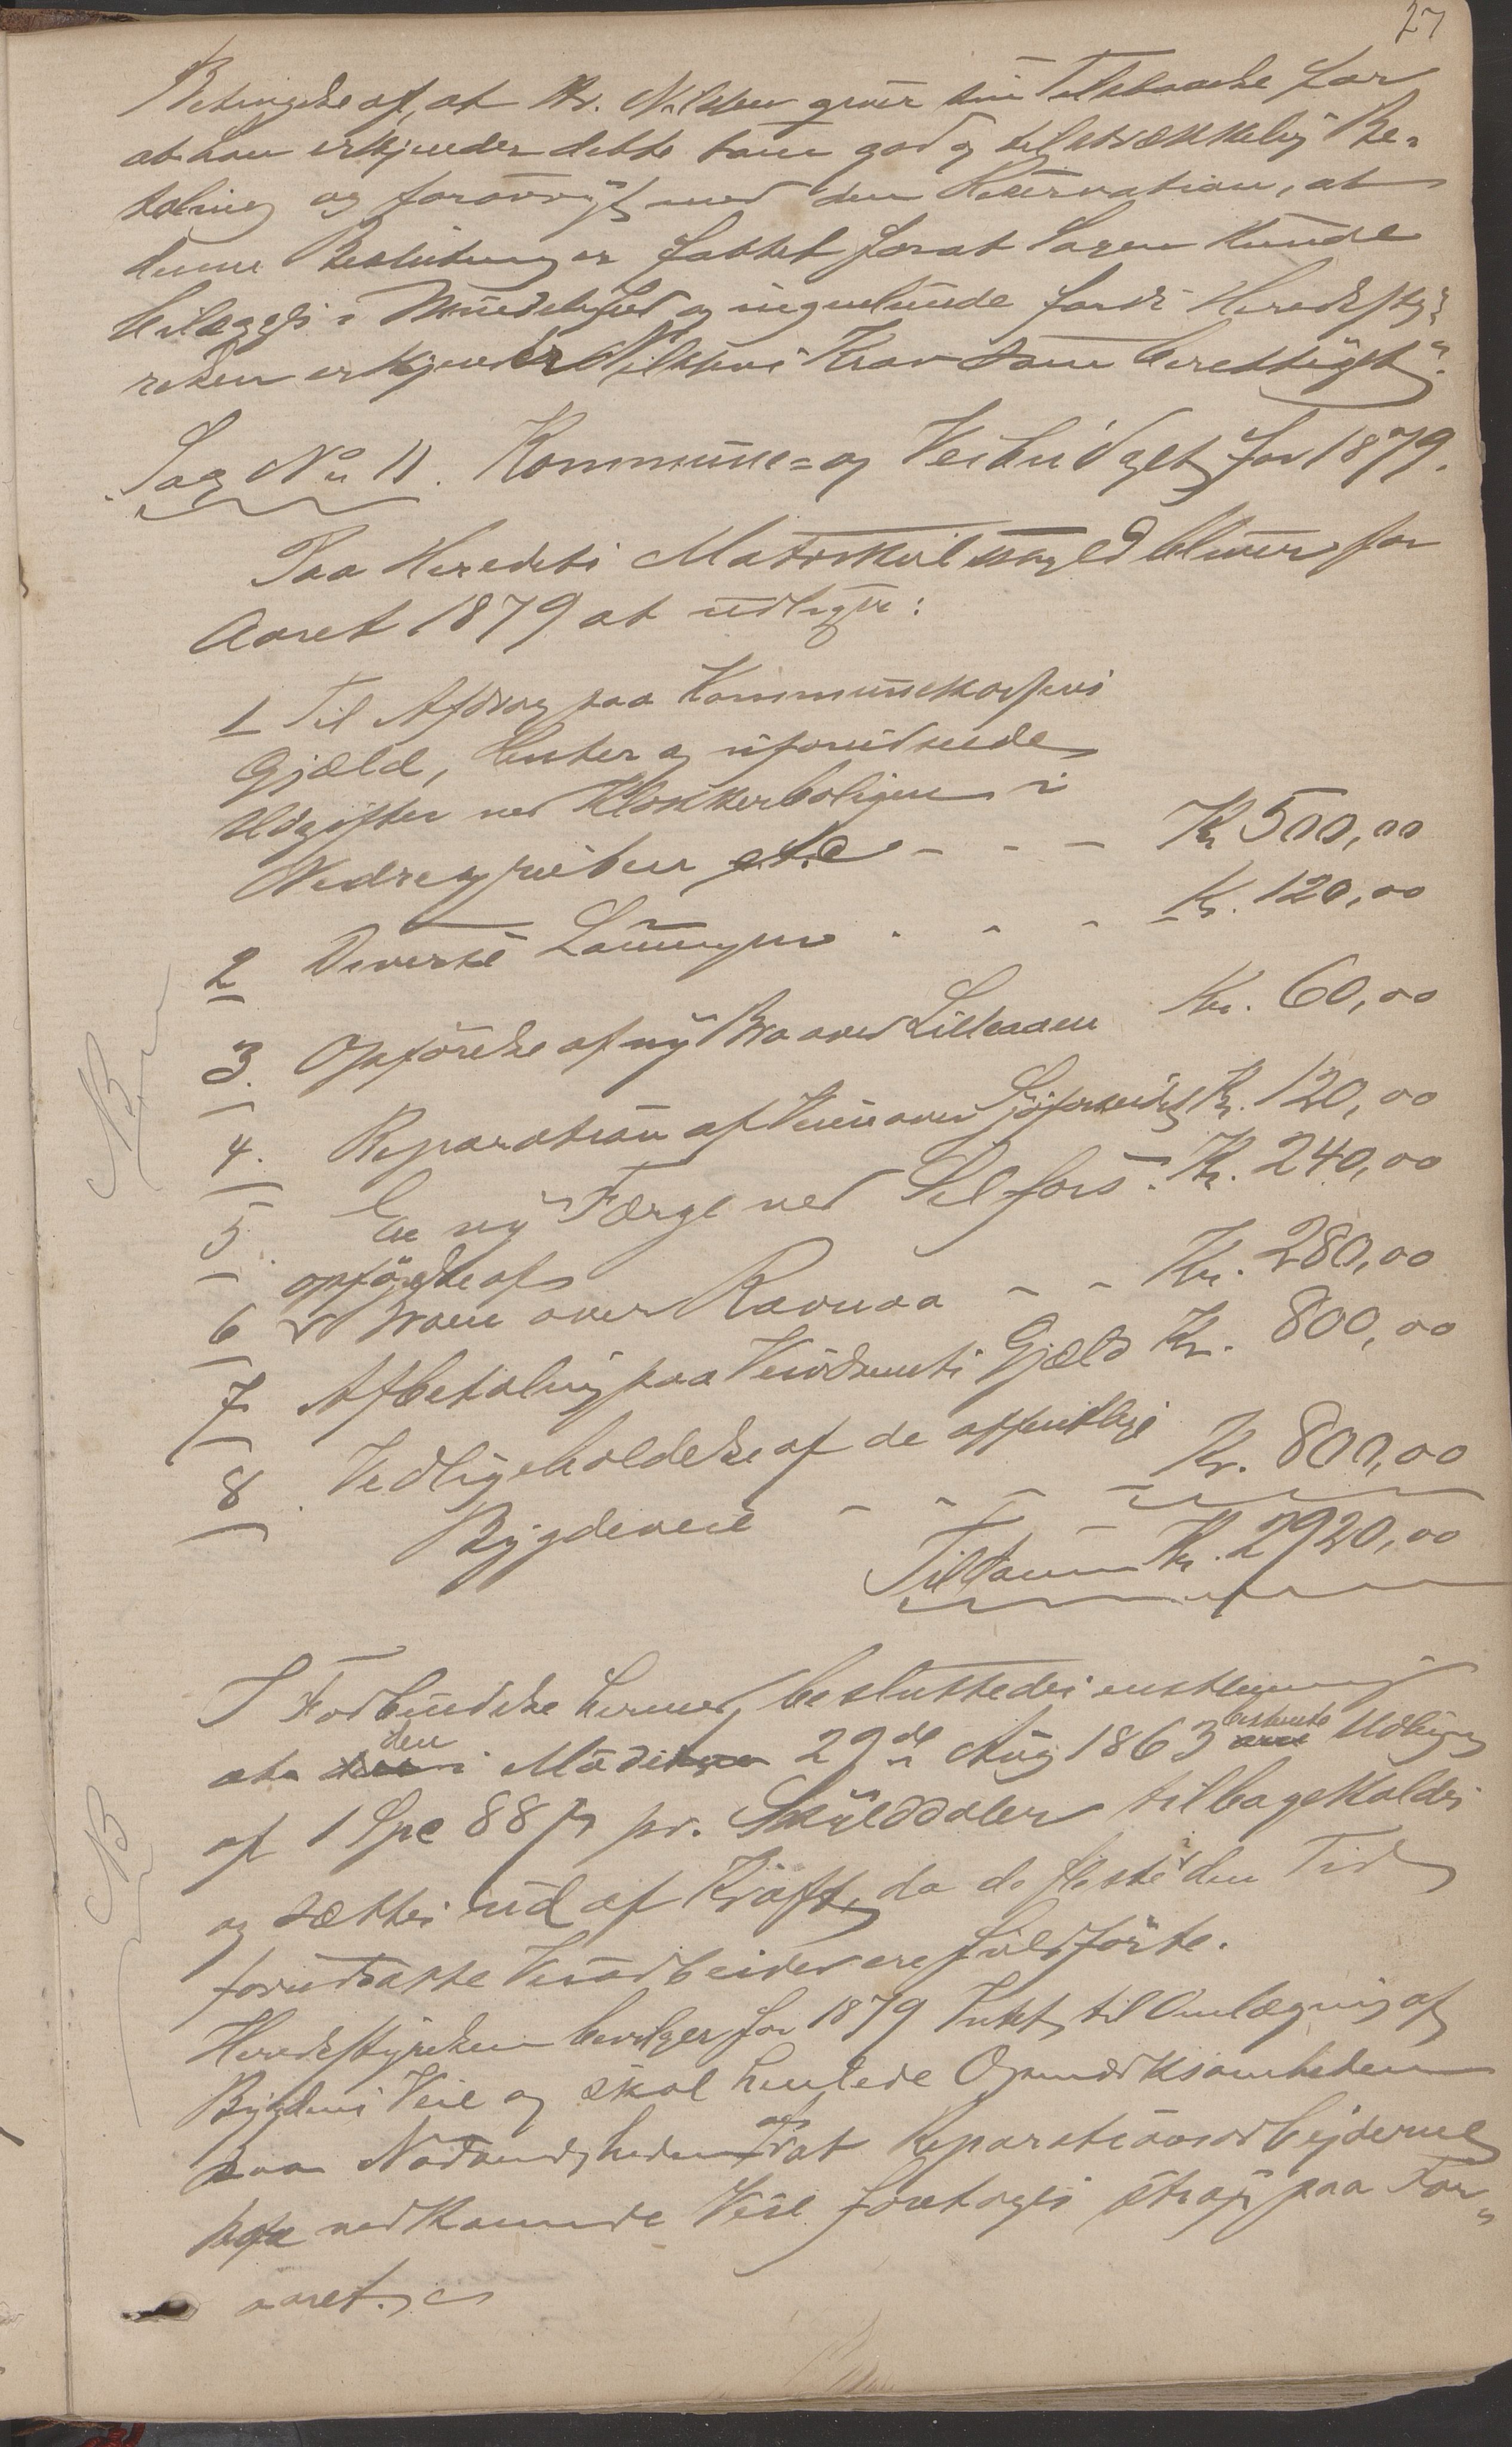 27
Betingelse af, at Hr. Nilsen giver sin Tilstaaelse for
at han erkjender dette som god og tilstrækkelig Be-
taling og forøvrigt med den Reservation, at
denne Beslutning er fattet forat Sagen kunde
bilægges i Mindelighed og ingenlunde fordi Heredsty-
relsen erkjender Nilsens Krav som berettiget".
Sag No 11. Kommune- og Veibudget for 1879.
Paa Heredets Matrikulskyld bliver for
Aaret 1879 at udligne:
1 Til Afdrag paa Kommunekassens
Gjæld, Renter og uforudseede
Udgifter ved Klokkerboligen i
Nedre - - - Kr 500,00
2 Diverse Lønninger - - - Kr. 120,00
3. Opførelse af ny Bro over Lilleaaen Kr. 60,00
4. Reparation af Veien over Kr. 120,00
5. En ny Færge ved Selfors. Kr. 240,00
opførelse af
6 Broen over Ravnaa - - Kr. 280,00
7. Afbetaling paa Veivæsenets Gjæld Kr. 800,00
8. Vedligeholdelse af de offentlige
Bygdeveie - - - - Kr. 800,00
Tilsammen Kr. 2920,00
I Forbindelse hermed besluttedes enstemmig
den bestemte
at i Møde 29de Aug 1863 Udligning
af 1 Spe 88 β pr. Skylddaler tilbagekaldes
og sættes ud af Kraft, da de fleste i den Tid
forudsatte Veiarbeider ere fuldførte.
Heredstyrelsen bevilger for 1879 Intet til Omlægning af
Bygdens Veie og skal henlede Opmærksomheden
paa Nødvendigheden af at Reparationsarbejderne
paa vedkommende Veie foretages strax paa For-
aaret.
NB
NB